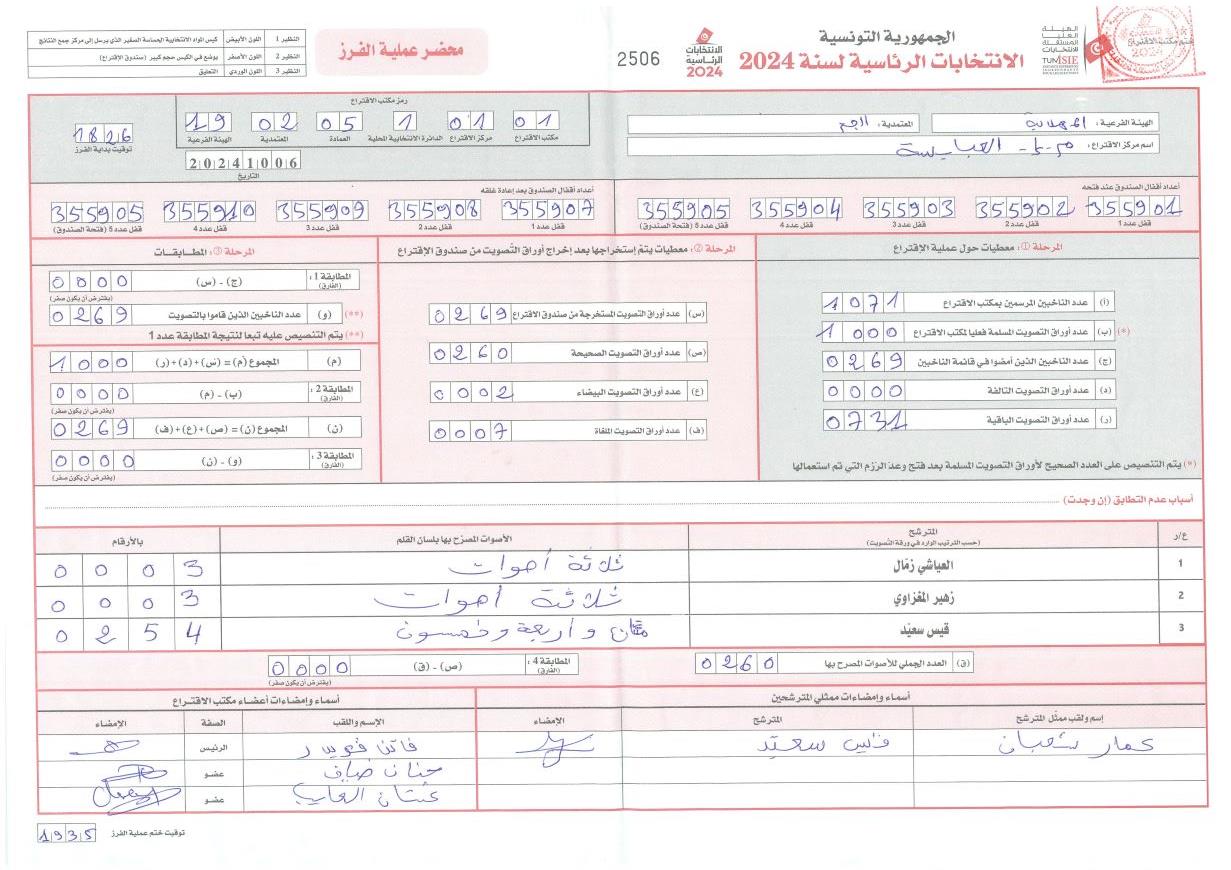 الجمهورية التونسية
الانتخابات الرئاسية لسنة 2024
الهيئة العليا المستقلة للانتخابات
TUNISIE
الانتخابات الرئاسية 2024
2506
محضر عملية الفرز
النظير 1 اللون الأبيض كيس المواد الانتخابية الحساسة الصغير الذي يرسل إلى مركز جمع النتائج
النظير 2 اللون الأصفر يوضع في الكيس حجم كبير (صندوق الإقتراع)
النظير 3 اللون الوردي التعليق
الهيئة الفرعية : المهدية
المعتمدية : الجم
اسم مركز الاقتراع : م.إ - العبايسة
رمز مكتب الاقتراع
01 01 1 05 02 19
مكتب الاقتراع مركز الاقتراع الدائرة الانتخابية المحلية العمادة المعتمدية الهيئة الفرعية
20241006
التاريخ
1826
توقيت بداية الفرز
أعداد أقفال الصندوق عند فتحه
355901 355902 355903 355904 355905
قفل عدد 1 قفل عدد 2 قفل عدد 3 قفل عدد 4 قفل عدد 5 (فتحة الصندوق)
أعداد أقفال الصندوق بعد إعادة غلقه
355907 355908 355909 355910 355905
قفل عدد 1 قفل عدد 2 قفل عدد 3 قفل عدد 4 قفل عدد 5 (فتحة الصندوق)
المرحلة ①: معطيات حول عملية الاقتراع
(أ) عدد الناخبين المرسمين بمكتب الاقتراع 1071
(*) (ب) عدد أوراق التصويت المسلمة فعليا لمكتب الاقتراع 1000
(ج) عدد الناخبين الذين أمضوا في قائمة الناخبين 0269
(د) عدد أوراق التصويت التالفة 0000
(ر) عدد أوراق التصويت الباقية 0731
(*) يتم التنصيص على العدد الصحيح لأوراق التصويت المسلمة بعد فتح وعد الرزم التي تم استعمالها
المرحلة ②: معطيات يتم إستخراجها بعد إخراج أوراق التصويت من صندوق الإقتراع
(س) عدد أوراق التصويت المستخرجة من صندوق الاقتراع 0269
(ص) عدد أوراق التصويت الصحيحة 0260
(ع) عدد أوراق التصويت البيضاء 0002
(ف) عدد أوراق التصويت الملغاة 0007
المرحلة ③: المطابقات
المطابقة 1: (الفارق) (ج) - (س) 0000
(يفترض أن يكون صفر)
(**) (و) عدد الناخبين الذين قاموا بالتصويت 0269
(**) يتم التنصيص عليه تبعا لنتيجة المطابقة عدد 1
(م) المجموع (م) = (س) + (د) + (ر) 1000
المطابقة 2: (الفارق) (ب) - (م) 0000
(يفترض أن يكون صفر)
(ن) المجموع (ن) = (ص) + (ع) + (ف) 0269
المطابقة 3: (الفارق) (و) - (ن) 0000
(يفترض أن يكون صفر)
أسباب عدم التطابق (إن وجدت)
ع/ر المترشح (حسب الترتيب الوارد في ورقة التصويت) الأصوات المصرّح بها بلسان القلم بالأرقام
1 العياشي زمّال ثلاثة أصوات 0003
2 زهير المغزاوي ثلاثة أصوات 0003
3 قيس سعيّد مئتان وأربعة وخمسون 0254
(ق) العدد الجملي للأصوات المصرح بها 0260
المطابقة 4: (الفارق) (ص) - (ق) 0000
(يفترض أن يكون صفر)
أسماء وإمضاءات ممثلي المترشحين
إسم ولقب ممثّل المترشح المترشح الإمضاء
عمار شعبان قيس سعيّد
أسماء وإمضاءات أعضاء مكتب الاقتراع
الإسم واللقب الصفة الإمضاء
فاتن الرئيس
حنان ضياف عضو
عضو
توقيت ختم عملية الفرز 1935